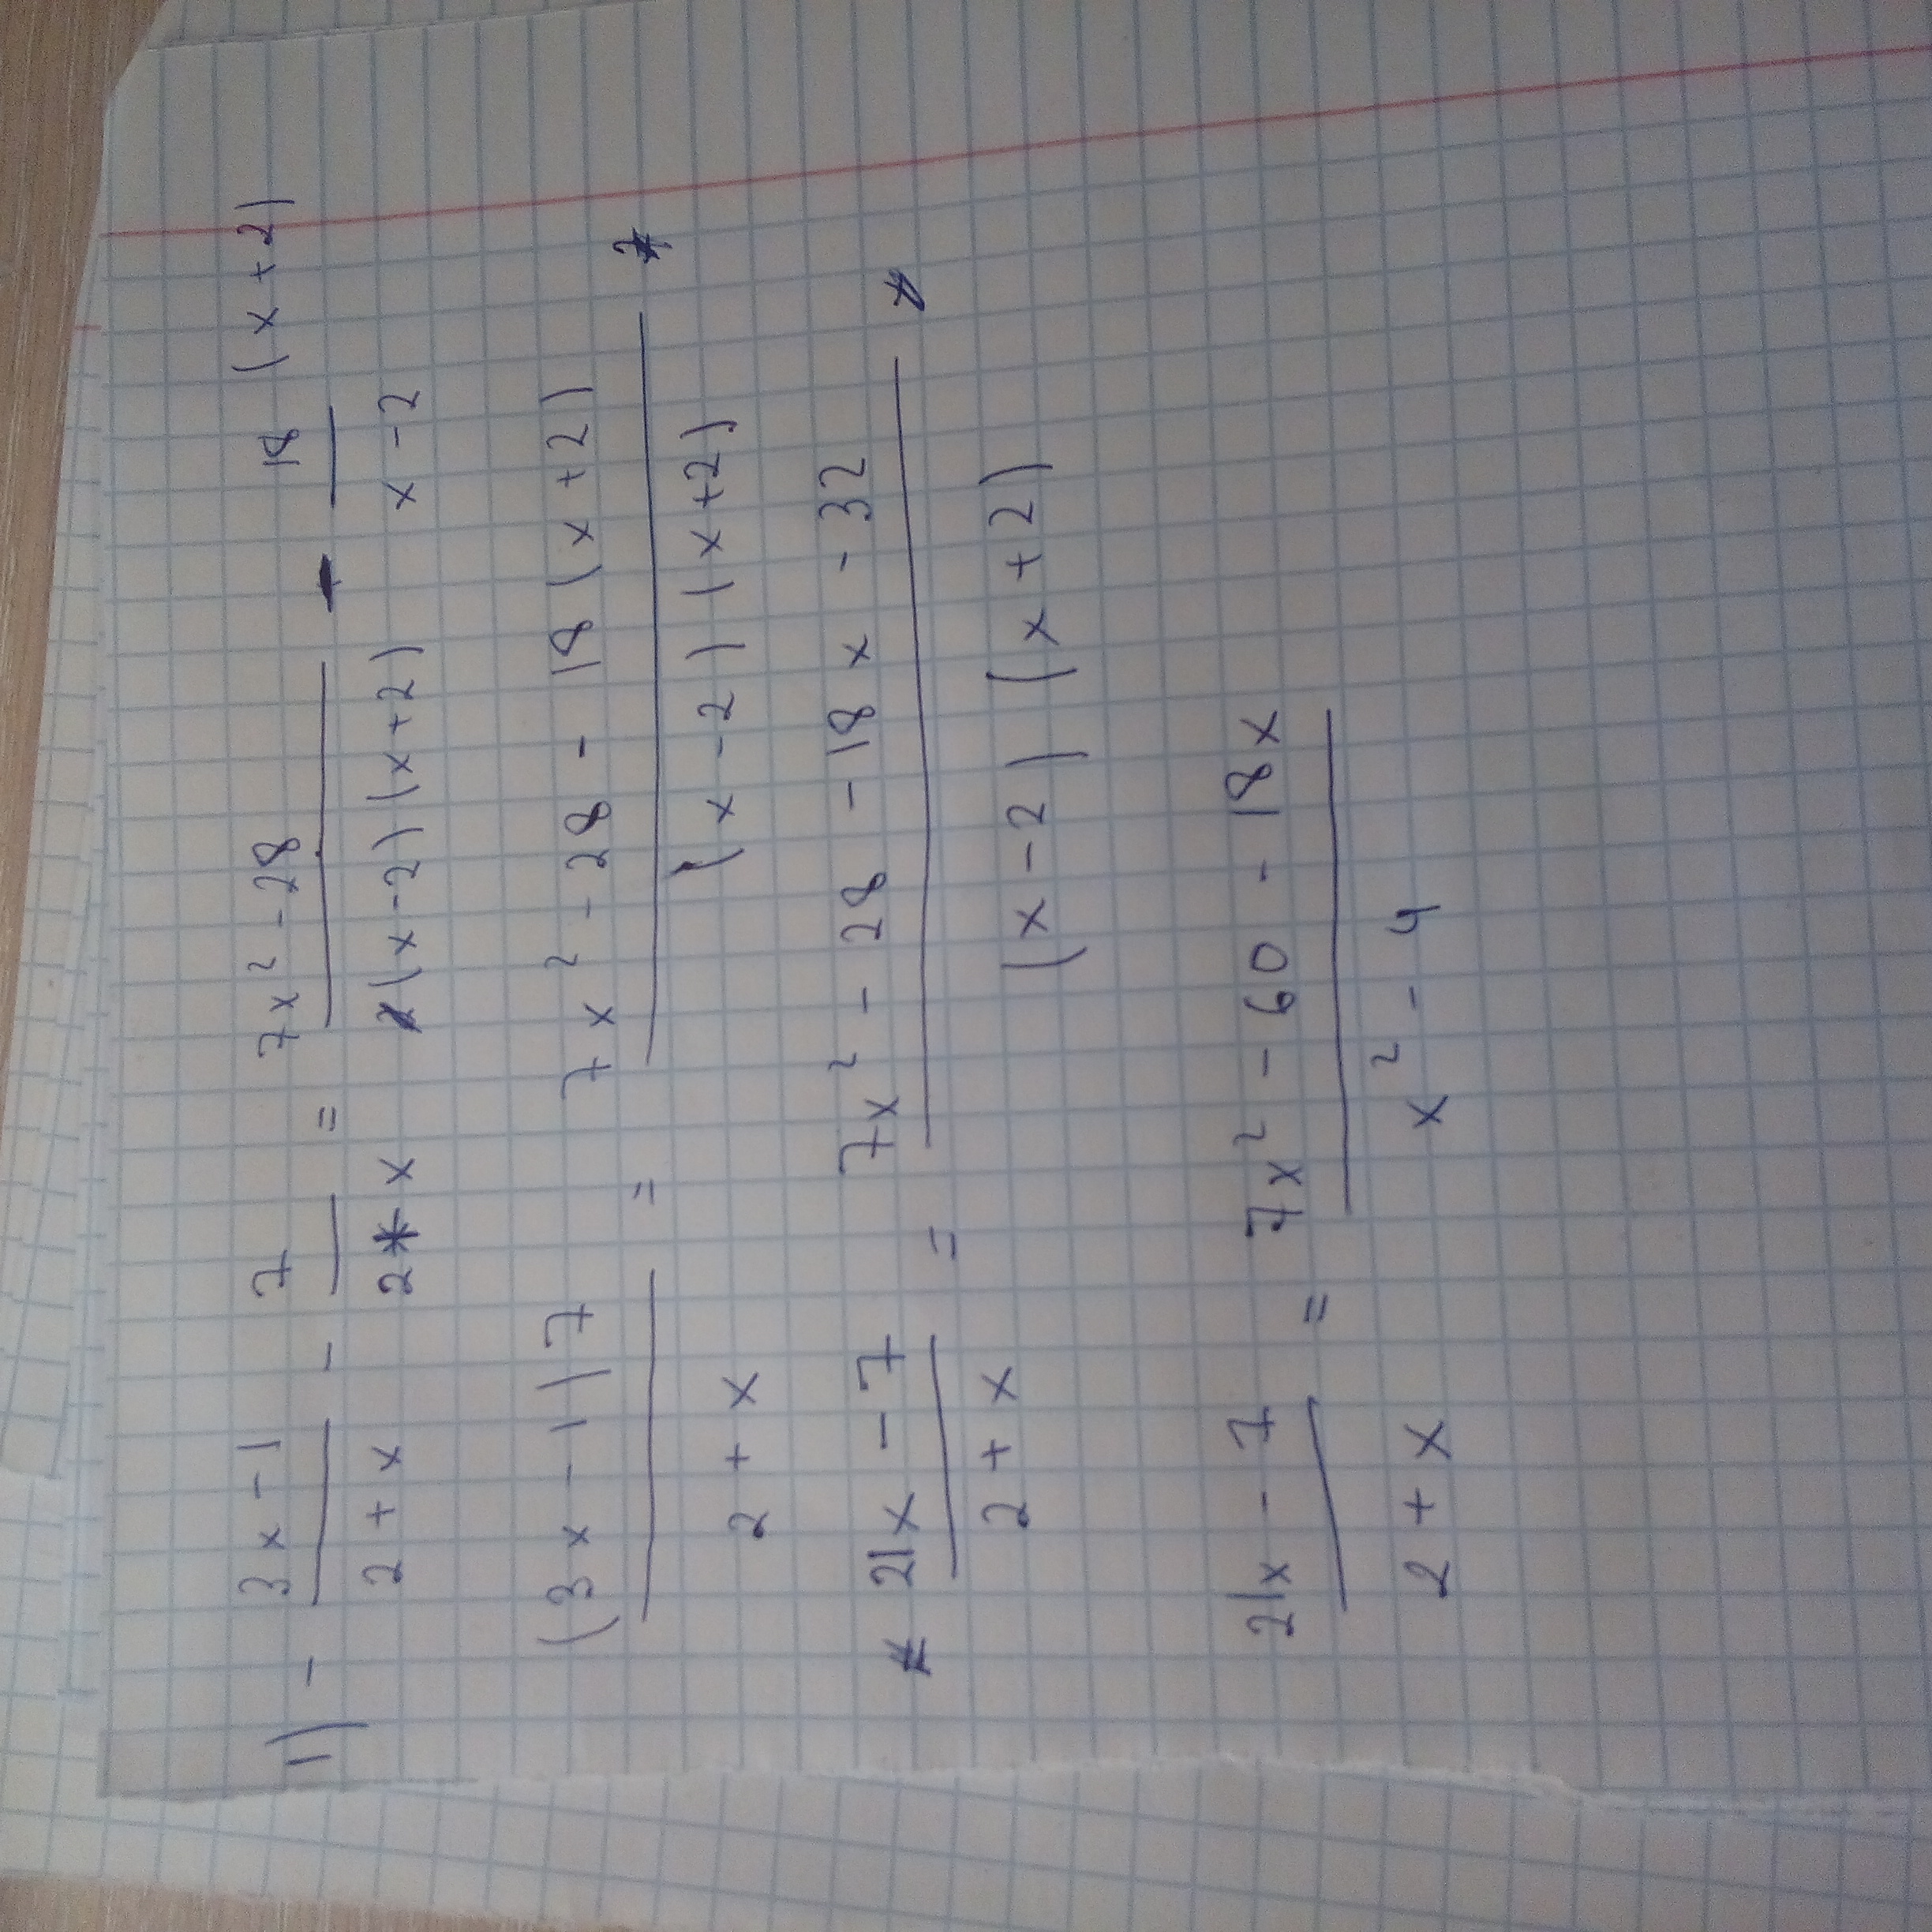 1) - (3x - 1)/(2 + x) - 7/(2 * x) = (7x² - 28)/((x - 2)(x + 2)) - 18/(x - 2) (x + 2)
((3x - 1) 7)/(2 + x) = (7x² - 28 - 18(x + 2))/((x - 2)(x + 2))
(21x - 7)/(2 + x) = (7x² - 28 - 18x - 32)/((x - 2)(x + 2))
(21x - 7)/(2 + x) = (7x² - 60 - 18x)/(x² - 4)